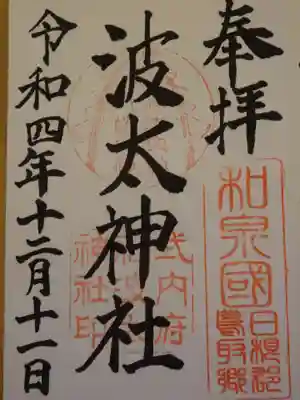 奉拝
和泉國
日根郡
鳥取郷
波太神社
式内府
神社印
令和四年十二月十一日